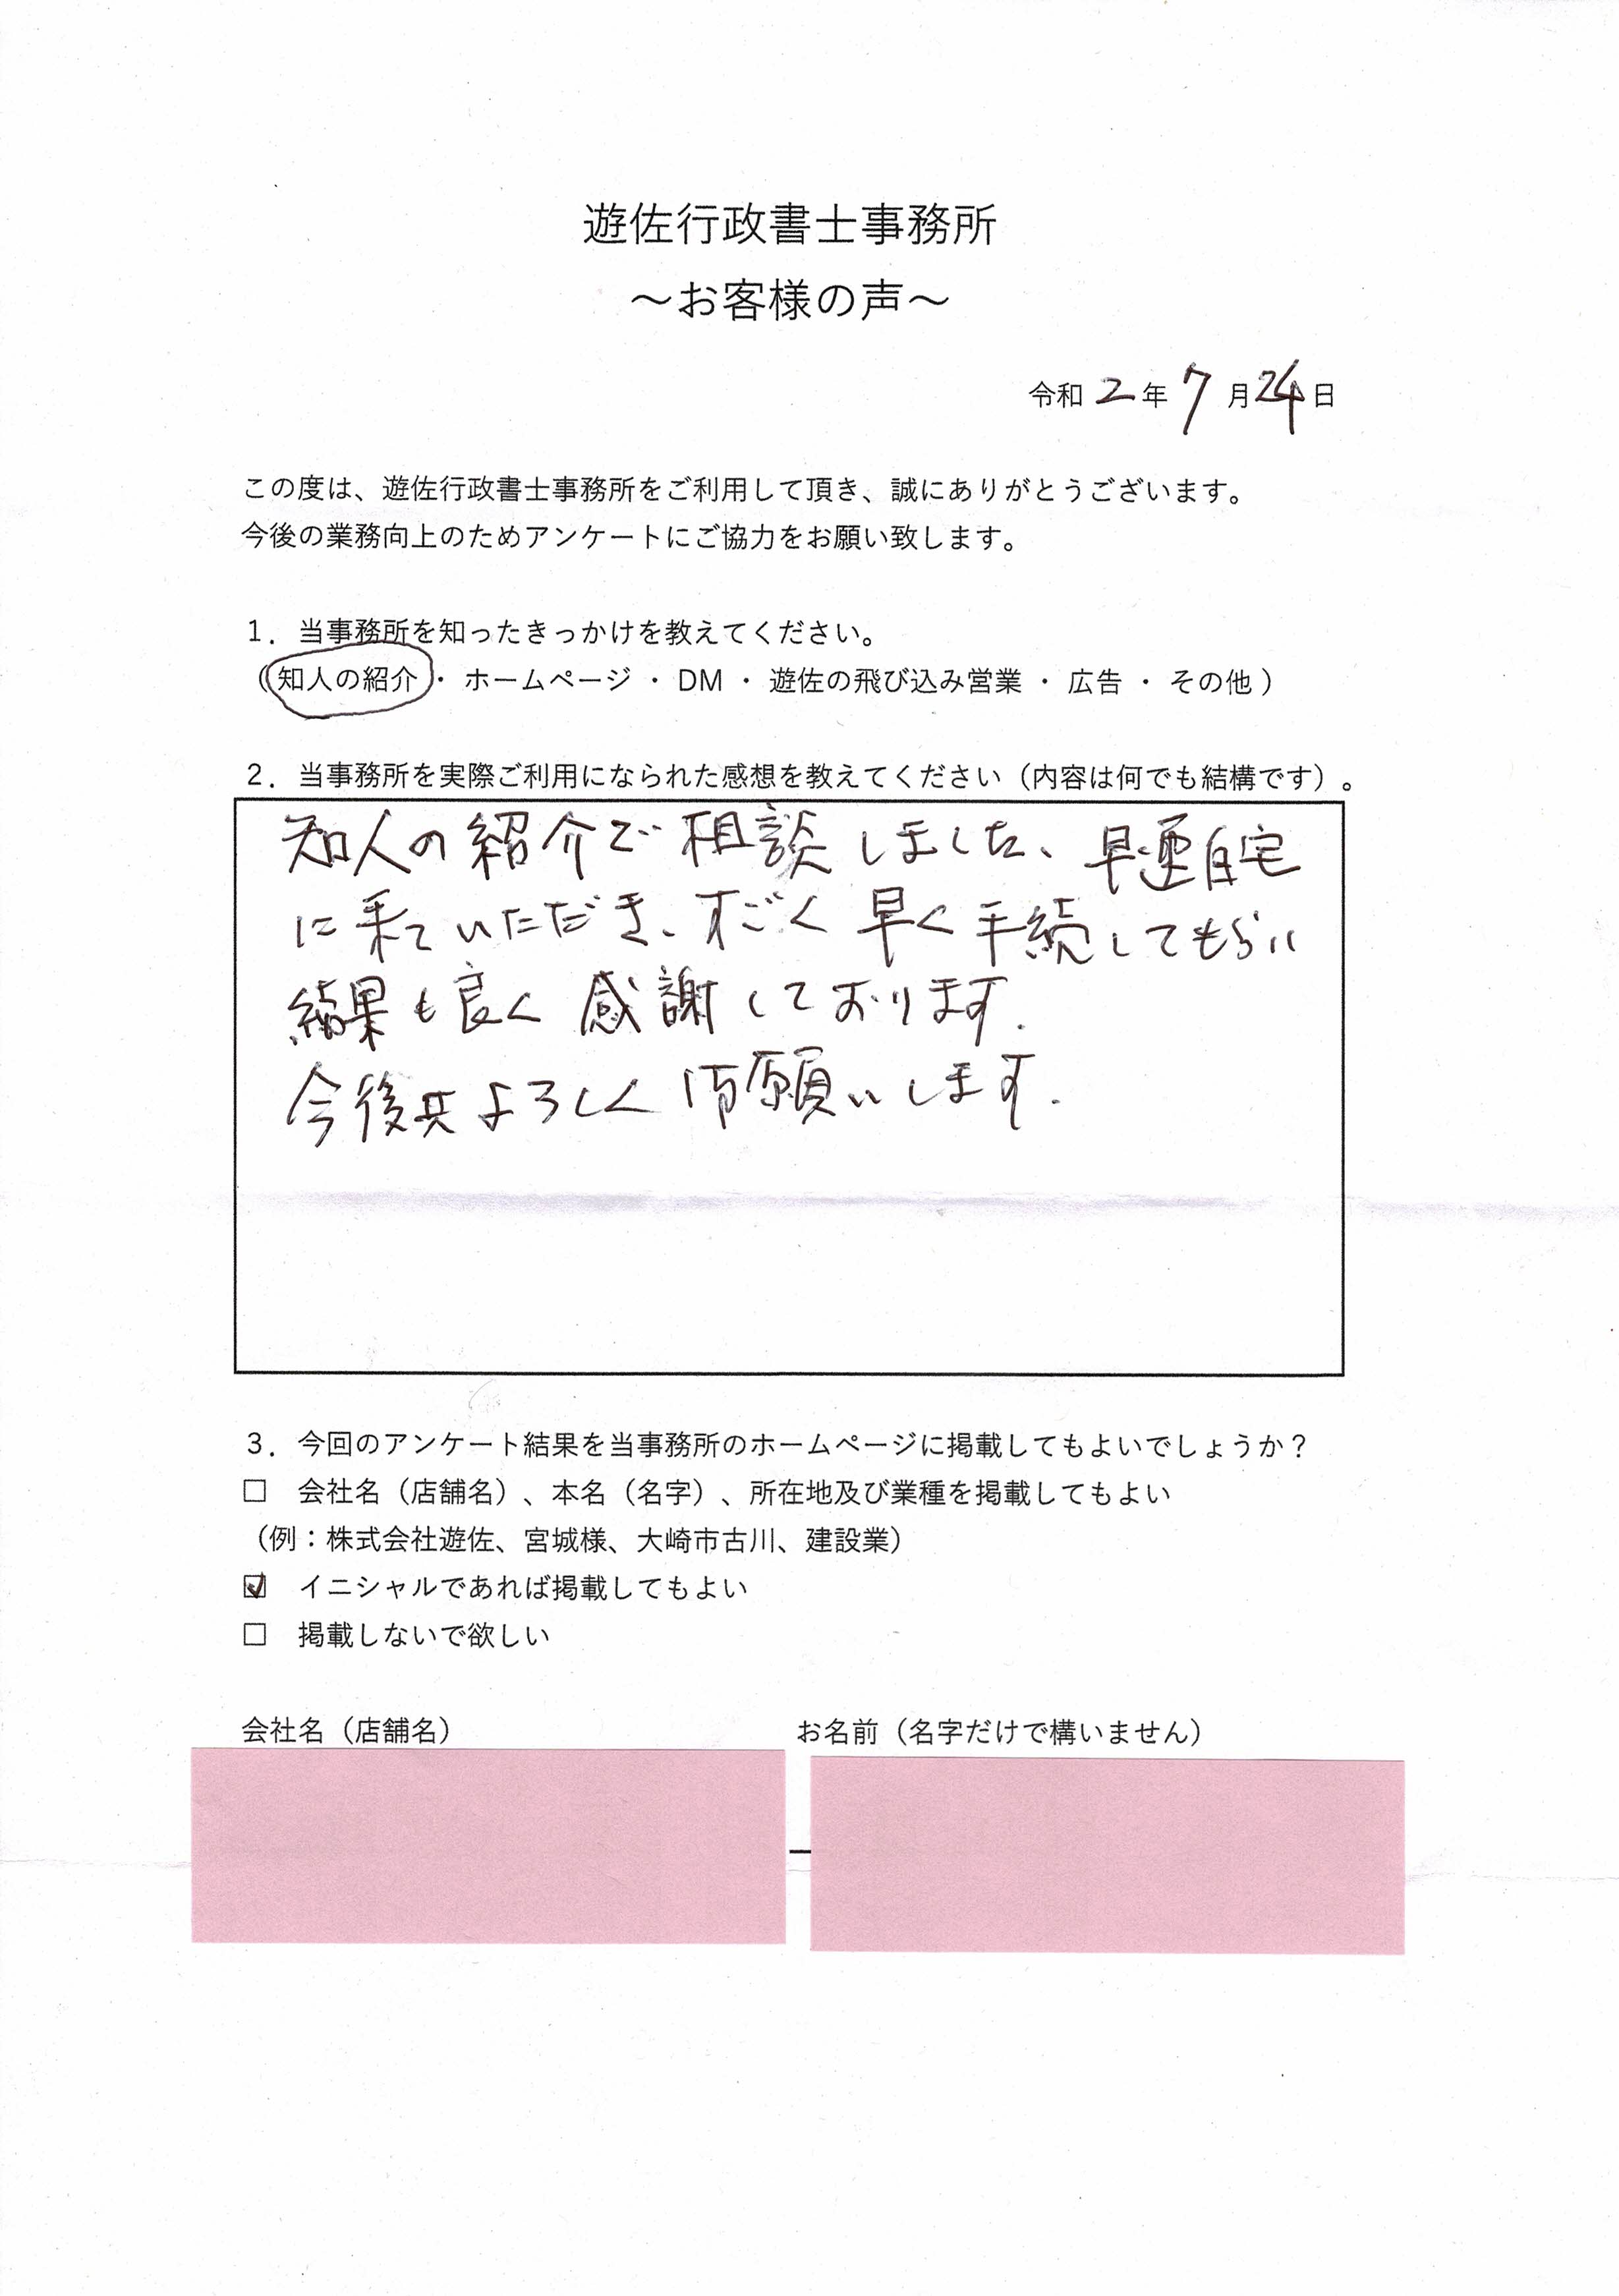 遊佐行政書士事務所
～お客様の声～
令和 2 年 7 月 24 日
この度は、遊佐行政書士事務所をご利用して頂き、誠にありがとうございます。
今後の業務向上のためアンケートにご協力をお願い致します。
1．当事務所を知ったきっかけを教えてください。
（知人の紹介・ホームページ ・ DM ・ 遊佐の飛び込み営業 ・ 広告 ・ その他 ）
2．当事務所を実際ご利用になられた感想を教えてください（内容は何でも結構です）。
知人の紹介で相談しました、早速自宅
に来ていただき、すごく早く手続してもらい
結果も良く感謝しております.
今後共よろしく御願いします.
3．今回のアンケート結果を当事務所のホームページに掲載してもよいでしょうか？
□ 会社名（店舗名）、本名（名字）、所在地及び業種を掲載してもよい
（例：株式会社遊佐、宮城様、大崎市古川、建設業）
☑ イニシャルであれば掲載してもよい
□ 掲載しないで欲しい
会社名（店舗名） お名前（名字だけで構いません）